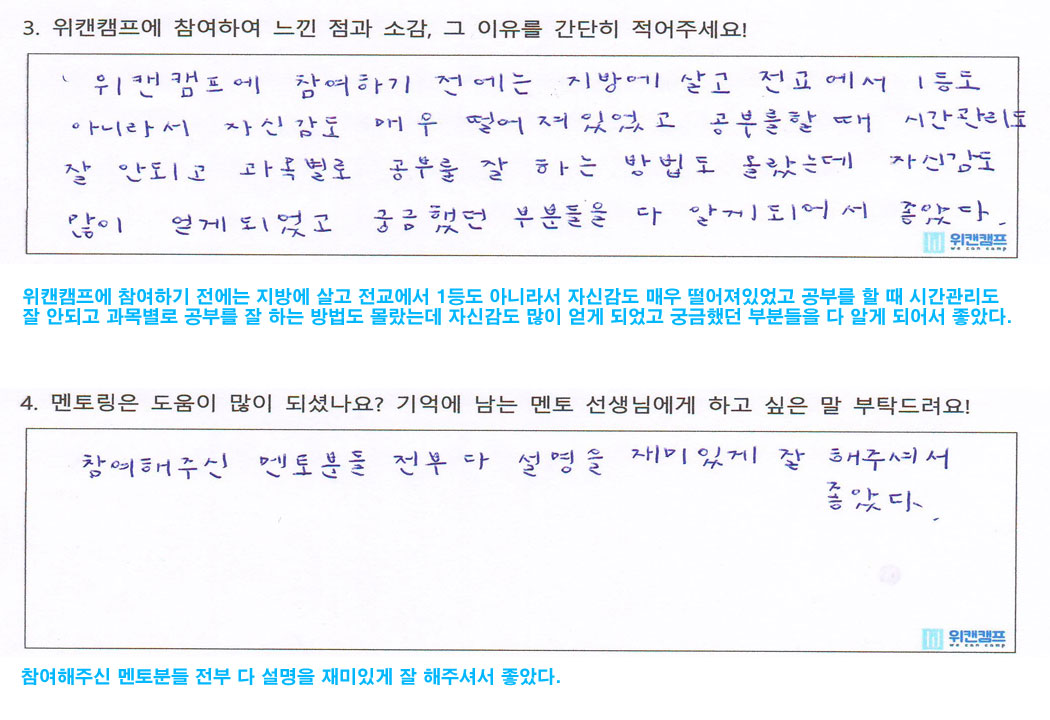 3. 위캔캠프에 참여하여 느낀 점과 소감, 그 이유를 간단히 적어주세요!
위캔캠프에 참여하기 전에는 지방에 살고 전교에서 1등도
아니라서 자신감도 매우 떨어져있었고 공부를할 때 시간관리도
잘 안되고 과목별로 공부를 잘 하는 방법도 몰랐는데 자신감도
많이 얻게되었고 궁금했던 부분들을 다 알게되어서 좋았다.
위캔캠프
we can camp
위캔캠프에 참여하기 전에는 지방에 살고 전교에서 1등도 아니라서 자신감도 매우 떨어져있었고 공부를 할 때 시간관리도
잘 안되고 과목별로 공부를 잘 하는 방법도 몰랐는데 자신감도 많이 얻게 되었고 궁금했던 부분들을 다 알게 되어서 좋았다.
4. 멘토링은 도움이 많이 되셨나요? 기억에 남는 멘토 선생님에게 하고 싶은 말 부탁드려요!
참여해주신 멘토분들 전부 다 설명을 재미있게 잘 해주셔서
좋았다.
위캔캠프
we can camp
참여해주신 멘토분들 전부 다 설명을 재미있게 잘 해주셔서 좋았다.